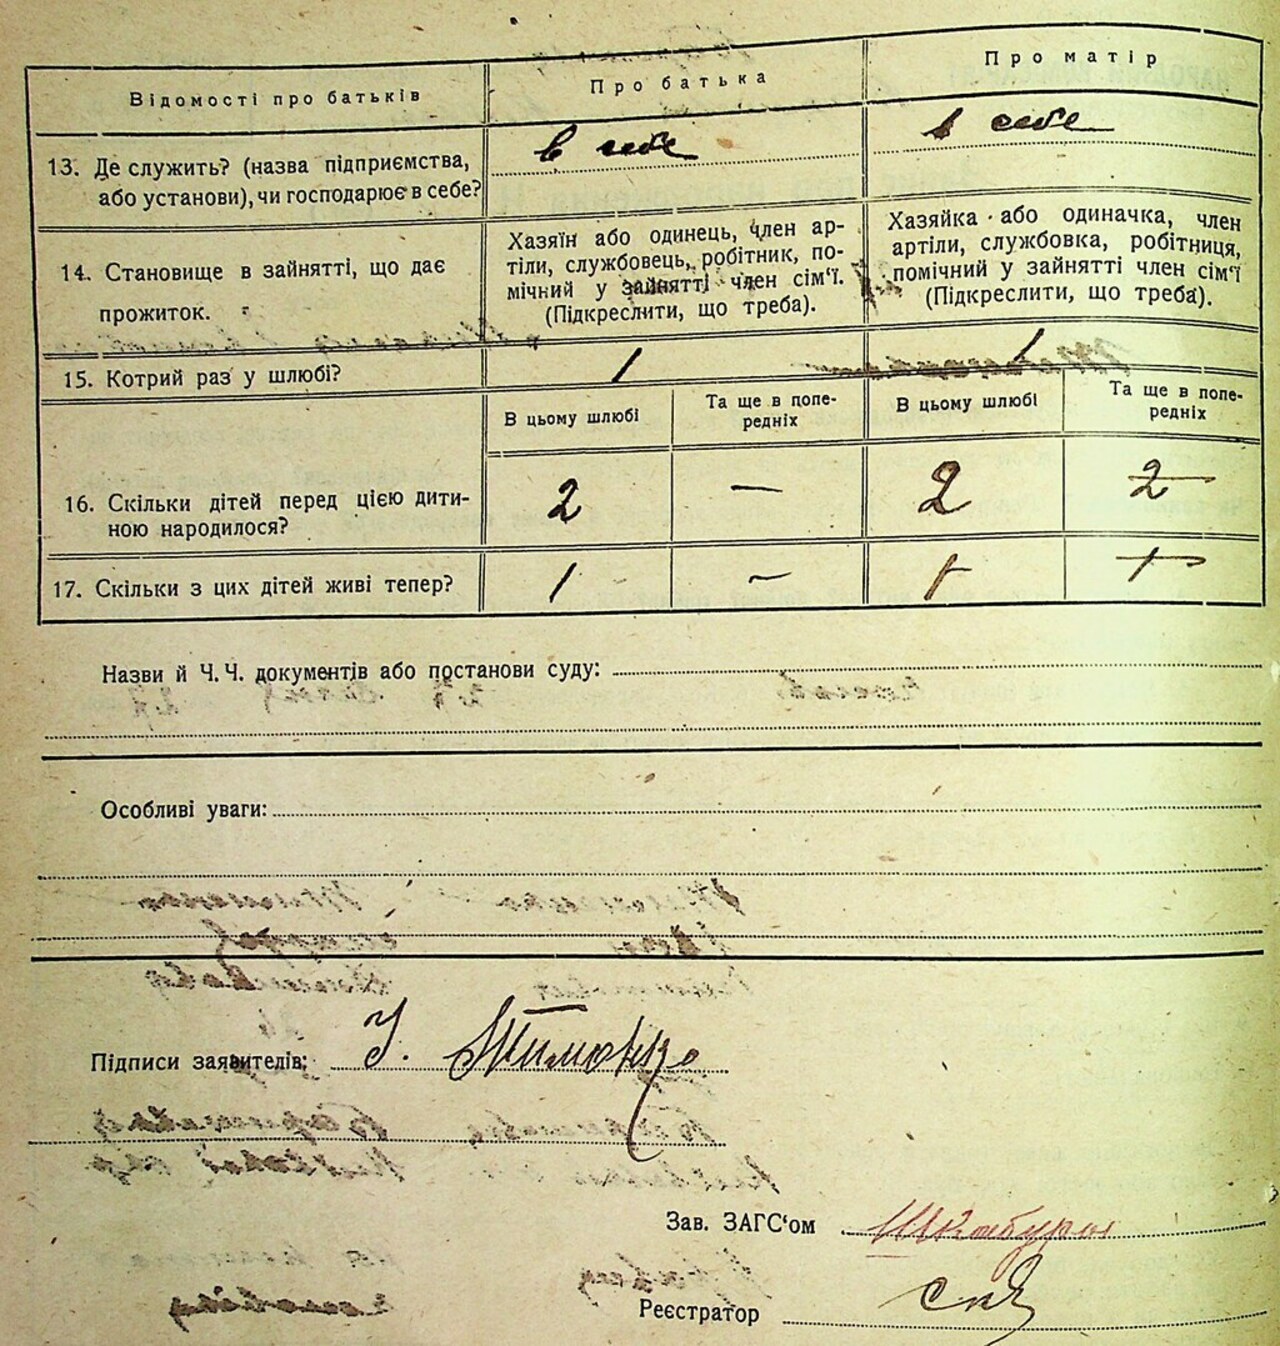 Відомості про батьків
Про батька
Про матір
13. Де служить? (назва підприємства, або установи), чи господарює в себе?
в себе
в себе
14. Становище в зайнятті, що дає прожиток.
Хазяїн або одинець, член ар-
тіли, службовець, робітник, по-
мічний у зайнятті член сім'ї.
(Підкреслити, що треба).
Хазяйка або одиначка, член
артіли, службовка, робітниця,
помічний у зайнятті член сім'ї
(Підкреслити, що треба).
15. Котрий раз у шлюбі?
1
1
В цьому шлюбі
Та ще в попе-
редніх
В цьому шлюбі
Та ще в попе-
редніх
16. Скільки дітей перед цією дити-
ною народилося?
2
—
2
2
17. Скільки з цих дітей живі тепер?
1
—
1
1
Назви й Ч.Ч. документів або постанови суду:
Особливі уваги:
Підписи заявителів: У. Тимонко
Зав. ЗАГС'ом
Реєстратор